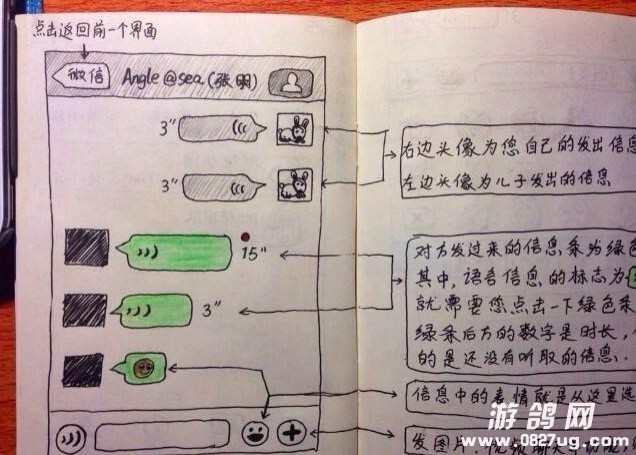 点击返回前一个界面
微信
Angle@sea(张明)
3"
3"
15"
3"
右边头像为您自己的发出信息
左边头像为儿子发出的信息
对方发过来的信息,条为绿色
其中,语音信息的标志为
就需要您点击一下绿色条
绿条后方的数字是时长,
的是还没有听取的信息.
信息中的表情就是从这里选
发图片、视频聊天等功能
游鸽网
www.0827ug.com